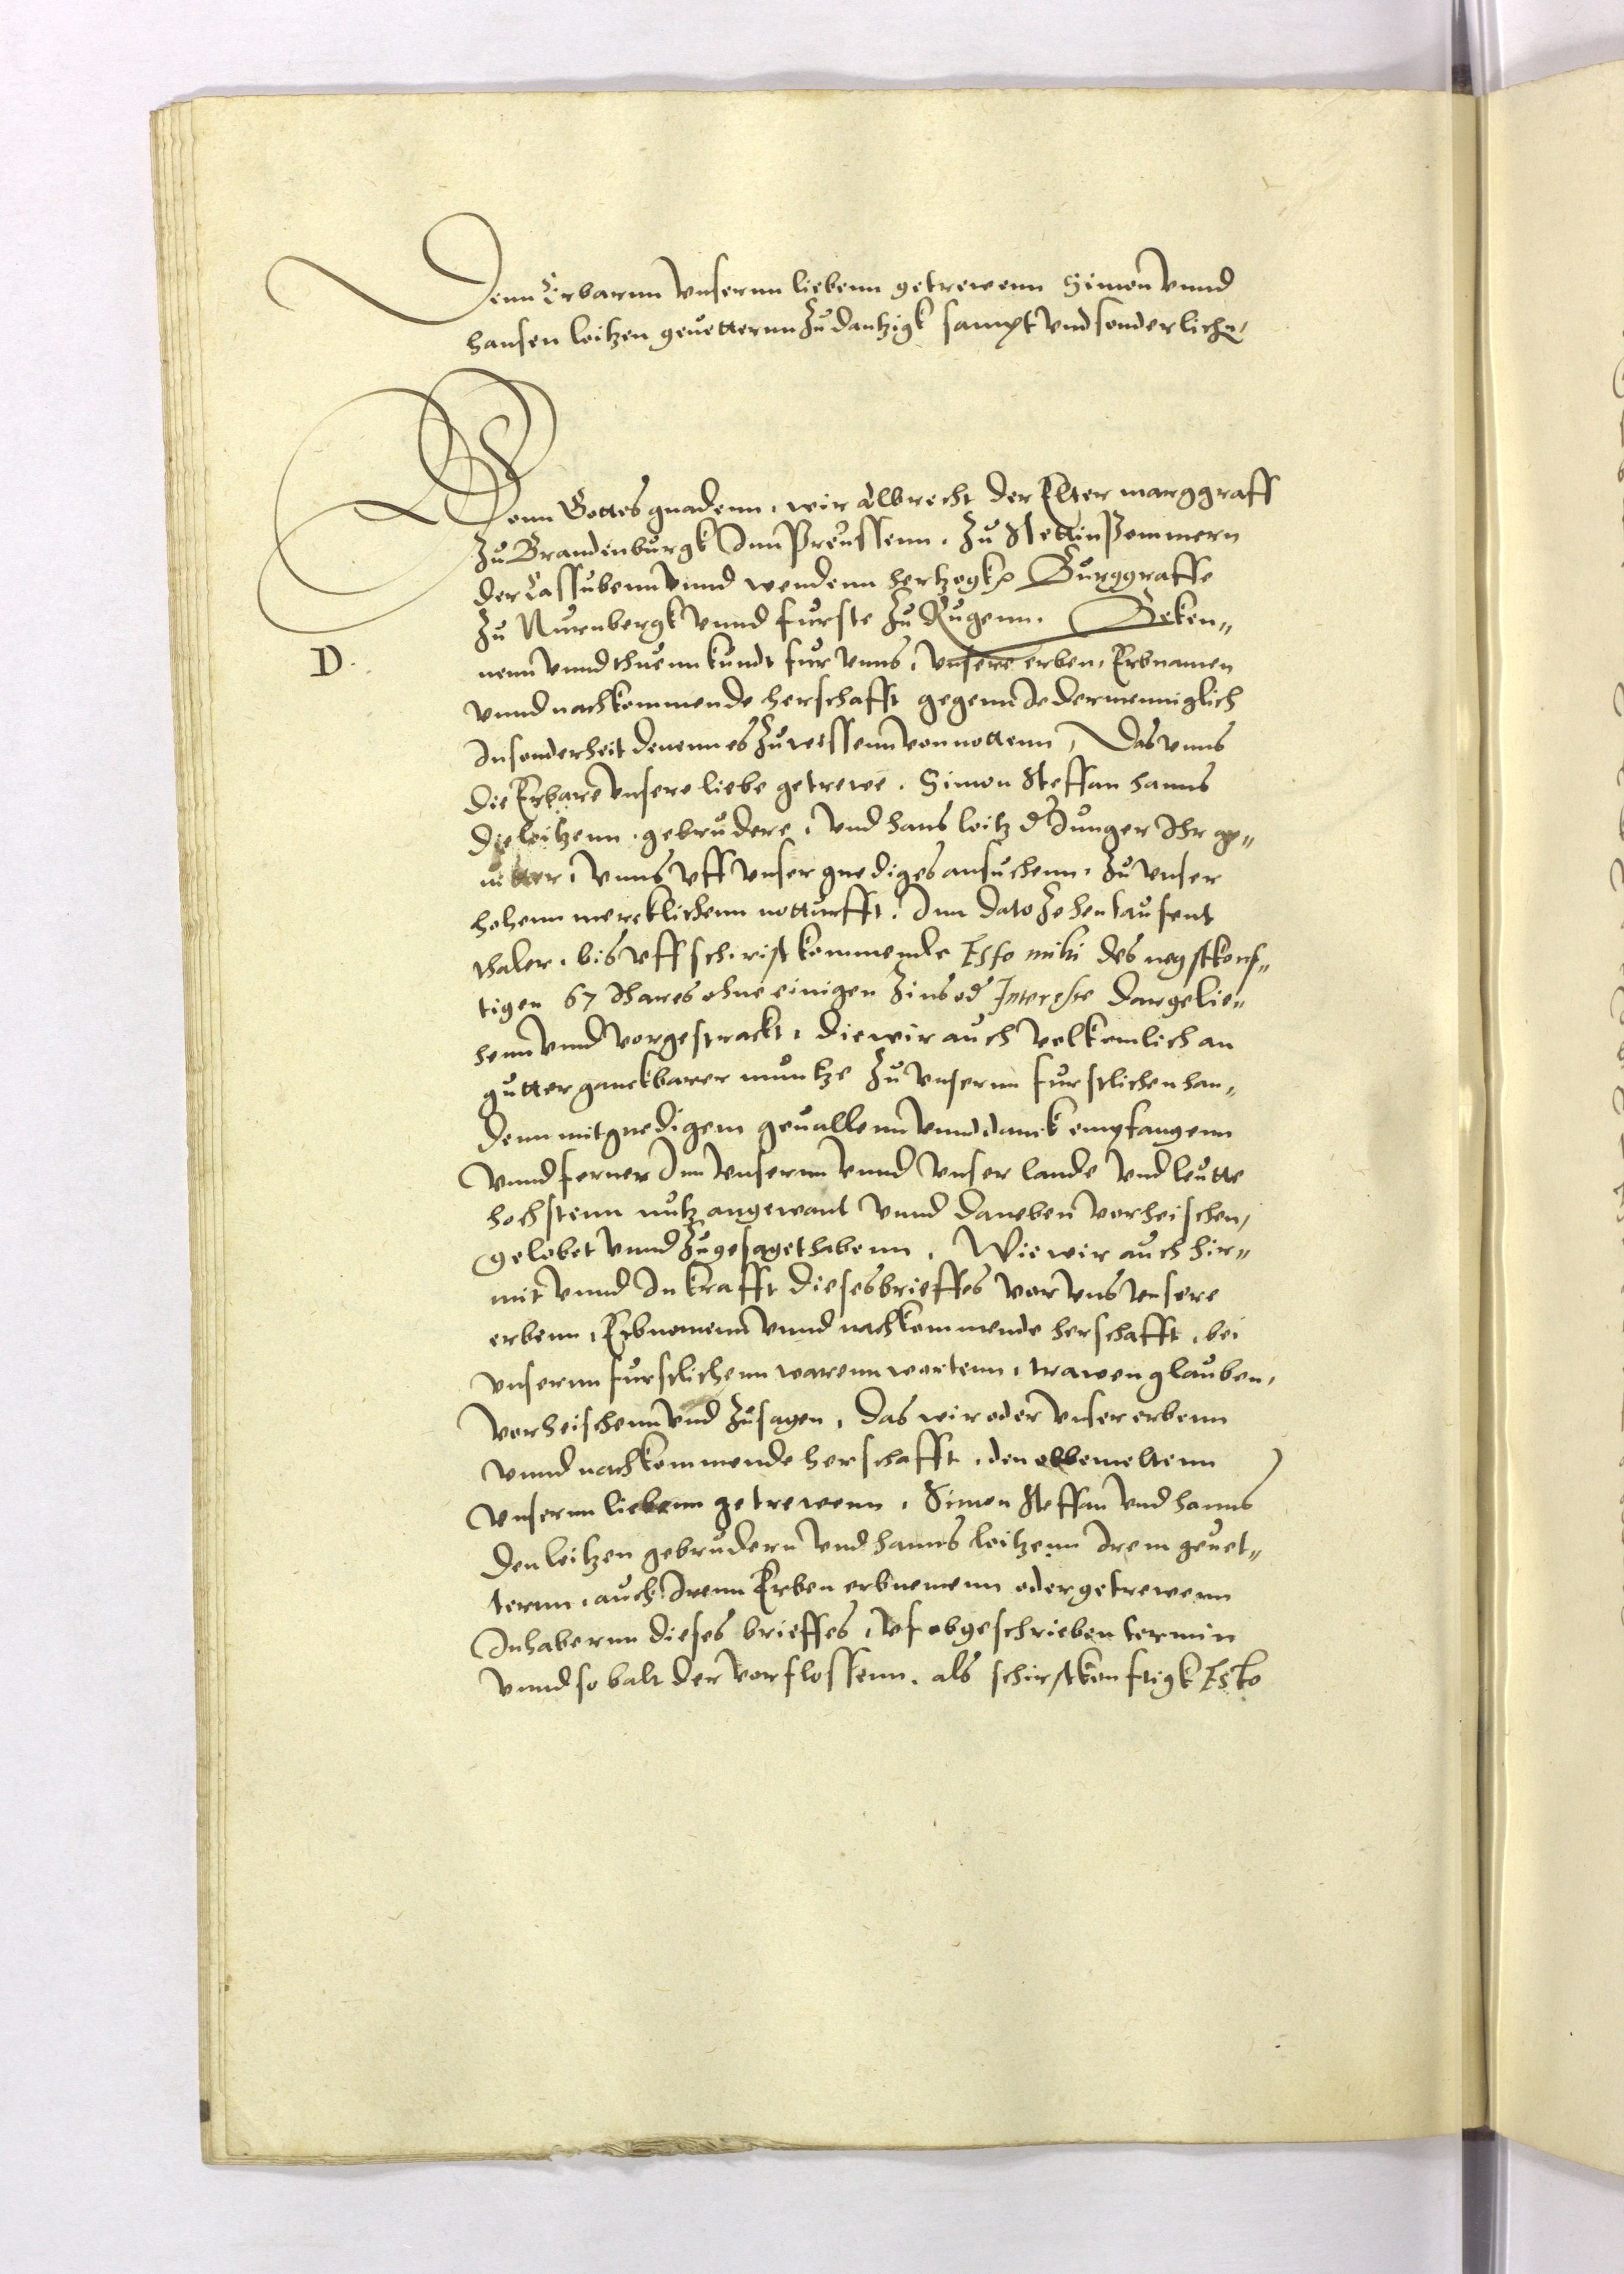 Denn Erbarnn vnsernn liebenn getrewenn Simon vnnd
hansen loitzen geuetternn zu dantzigk sampt vnd sonderlichn,
Vonn Gottes gnadenn, wir Albrecht der Elter marggraff
zu Brandenburgk Inn Preussenn, zu Stettin Pommern
der Cassubenn vnnd wendenn hertzogk Burggraffe
zu Nurnbergk vnnd furste zu Rugenn. Beken„
D.
nenn vnnd thuenn kundt fur vnns, vnsere erben, Erbnamen
vnnd nachkommende herschafft gegenn Jedermenniglich
Insonderheit denenn es zuwissenn vonnottenn, Das vnns
die Erbare vnsere liebe getrewe. Simon Steffan hanns
die loitzenn, gebrudere, vnd hans loitz d Junger Ihr ge„
uetter, vnns vff vnser gnediges ansuchenn, zu vnser
hohenn mercklichenn notturfft, Inn dato zehentausent
thaler, bis vff schirist kommende Esto mihi des negstkonf„
tigen 67 Ihares ohne einigen zins od Interesse dargelie„
henn vnnd vorgestrackt, die wir auch volkomlich an
gutter ganckbarer muntze zu vnsernn furstlichen han„
denn mit gnedigem geuallenn vnnd danck empfangenn
vnnd ferner Inn vnsernn vnnd vnser lande vnd leutte
hochstenn nutz angewant vnnd daneben vorheischen,
gelobet vnnd zugesaget habenn, Wie wir auch hir„
mit vnnd In krafft dieses brieffes vor vns vnsere
erbenn, Erbnemenn vnnd nachkommende herschafft, bei
vnsernn furstlichenn warenn wortenn, trawen glauben,
vorheischenn vnd zusagen, das wir oder vnser erbenn
vnnd nachkommende herschafft, den obbemeltenn
vnsernn liebenn getrewenn, Simon Steffan vnd hanns
den loitzen gebrudern vnd hanns loitzenn Irem geuet„
ternn, auch Irenn Erben erbnemenn oder getrewenn
Inhabernn dieses brieffes, vf obgeschrieben termin
vnnd so balt der vorflossenn, als schirstkonfftigk Esto